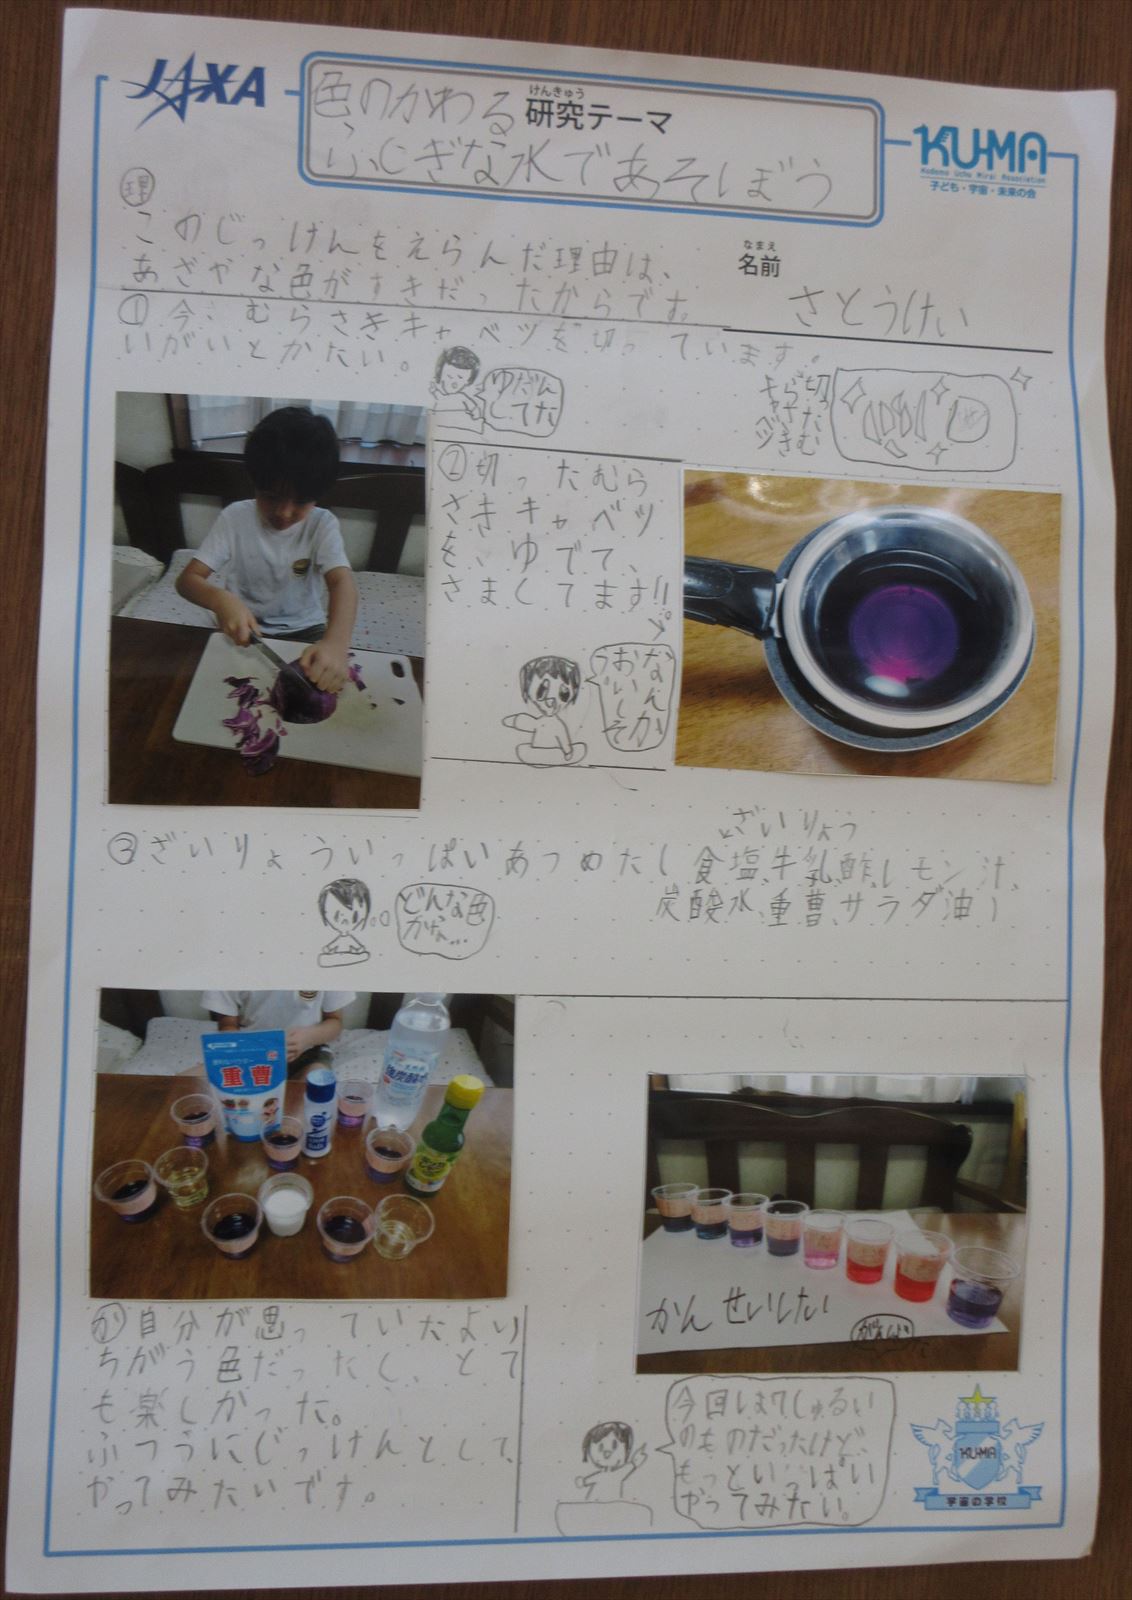 JAXA
色のかわる
けんきゅう
研究テーマ
ふしぎな水であそぼう
KU-MA
Kodomo Uchu Mirai Association
子ども・宇宙・未来の会
理
このじっけんをえらんだ理由は、
あざやな色がすきだったからです。
なまえ
名前
さとうけい
①今、むらさきキャベツを切っています。
いがいとかたい。
ゆだん
してた
切ったむ
らさき
キャベツ
②切ったむら
さきキャベツ
を、ゆでて、
さましてます!!
なんか
おいしそ
う
③ざいりょういっぱいあつめたし
ざいりょう
食塩、牛乳、酢、レモン汁、
炭酸水、重曹、サラダ油
どんな色
かな…
重曹
強炭酸水
かんせいしたい
か
自分が思っていたより
ちがう色だったし、とて
も楽しかった。
ふつうにじっけんとして、
やってみたいです。
今回は7しゅるい
のものだったけど、
もっといっぱい
やってみたい。
KU-MA
宇宙の学校